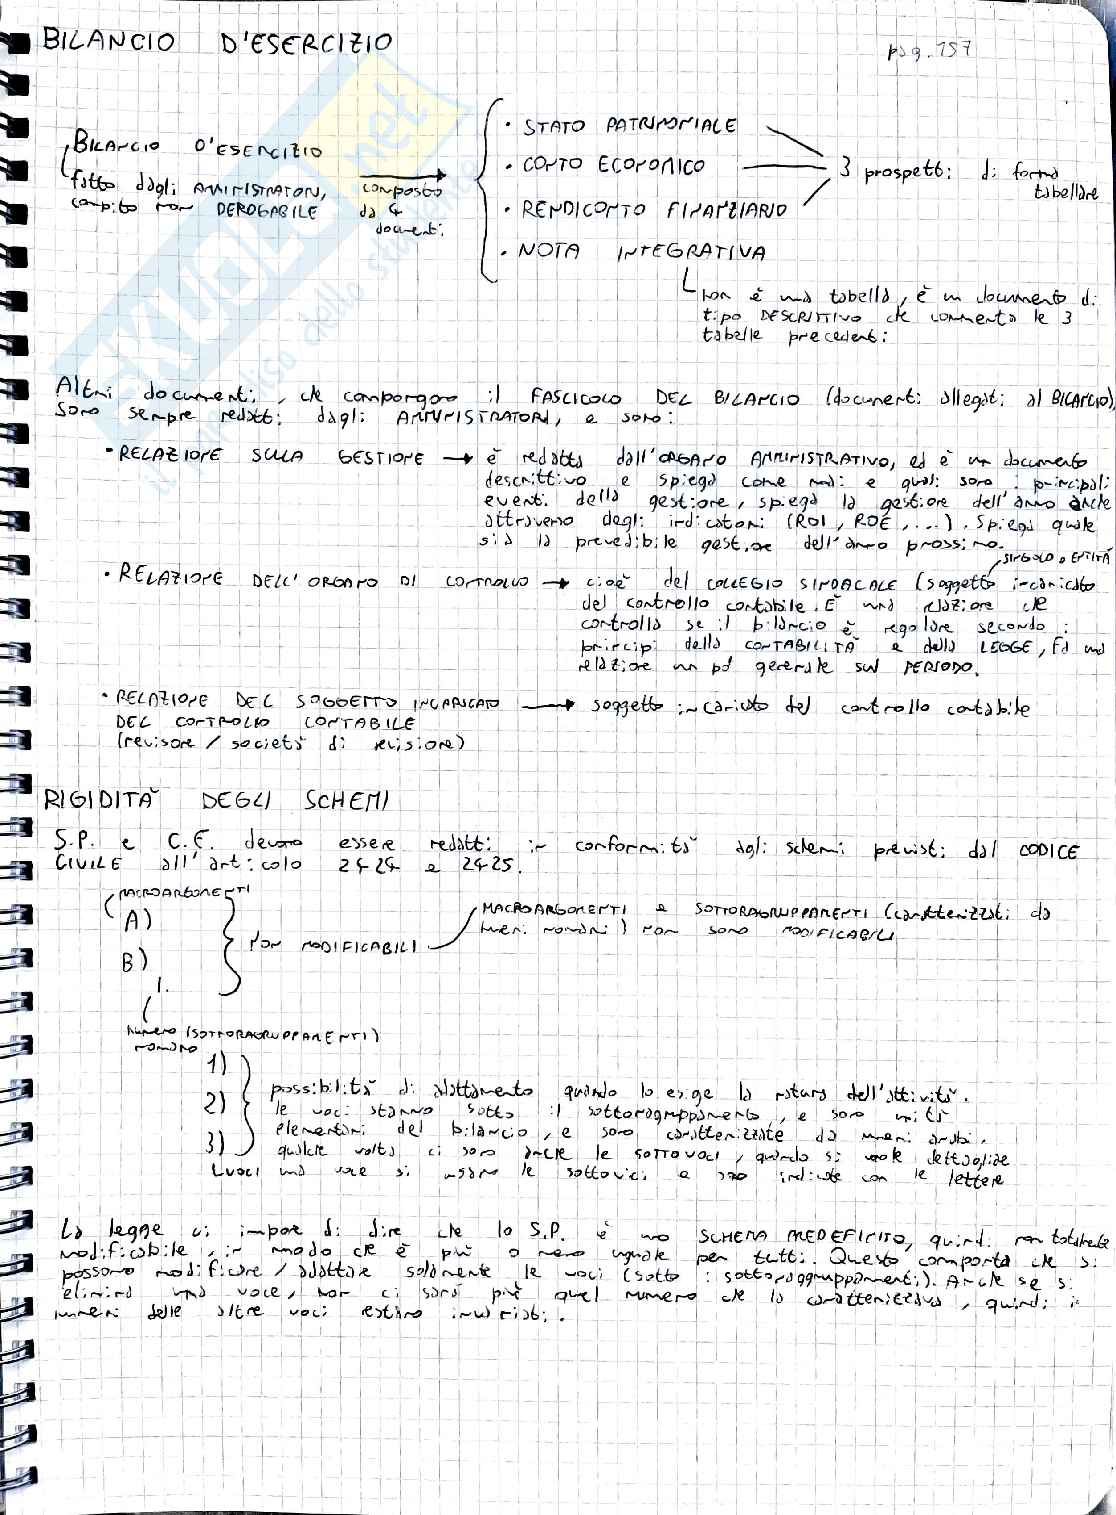 BILANCIO D'ESERCIZIO
pag. 157
BILANCIO D'ESERCIZIO
fatto dagli AMMINISTRATORI,
compito non DEROGABILE
composto
da 4
documenti
• STATO PATRIMONIALE
• CONTO ECONOMICO
• RENDICONTO FINANZIARIO
• NOTA INTEGRATIVA
3 prospetti di forma
tabellare
non è una tabella, è un documento di
tipo DESCRITTIVO che commenta le 3
tabelle precedenti
Altri documenti, che compongono il FASCICOLO DEL BILANCIO (documenti allegati al BILANCIO),
sono sempre redatti dagli AMMINISTRATORI, e sono:
• RELAZIONE SULLA GESTIONE → è redatta dall'ORGANO AMMINISTRATIVO, ed è un documento
descrittivo e spiega come mai e quali sono i principali
eventi della gestione, spiega la gestione dell'anno anche
attraverso degli indicatori (ROI, ROE, ...). Spiega quale
sia la prevedibile gestione dell'anno prossimo.
SINGOLO O ENTITÀ
• RELAZIONE DELL'ORGANO DI CONTROLLO → cioè del COLLEGIO SINDACALE (soggetto incaricato
del controllo contabile. È una relazione che
controlla se il bilancio è regolare secondo i
principi della CONTABILITÀ e della LEGGE, fa una
relazione un pò generale sul PERIODO.
• RELAZIONE DEL SOGGETTO INCARICATO → soggetto incaricato del controllo contabile
DEL CONTROLLO CONTABILE
(revisore / società di revisione)
RIGIDITÀ DEGLI SCHEMI
S.P. e C.E. devono essere redatti in conformità agli schemi previsti dal CODICE
CIVILE all'articolo 2424 e 2425.
MACROARGOMENTI
A)
B)
I.
NON MODIFICABILI
MACROARGOMENTI e SOTTORAGRUPPAMENTI (caratterizzati da
numeri romani) non sono MODIFICABILI
numero (SOTTORAGRUPPAMENTI)
romano
1)
2)
3)
voci
possibilità di adattamento quando lo esige la natura dell'attività.
le voci stanno sotto il sottoragruppamento, e sono unità
elementari del bilancio, e sono caratterizzate da numeri arabi.
qualche volta ci sono anche le SOTTOVOCI, quando si vuole dettagliare
una voce si usano le sottovoci e sono indicate con le lettere
La legge ci impone di dire che lo S.P. è uno SCHEMA PREDEFINITO, quindi non totalmente
modificabile, in modo che è più o meno uguale per tutti. Questo comporta che si
possono modificare / adattare solamente le voci (sotto i sottoraggruppamenti). Anche se si
elimina una voce, non ci sarà più quel numero che la caratterizzava, quindi i
numeri delle altre voci restano invariati.